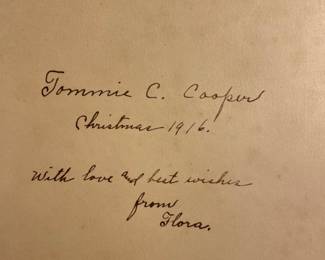 Tommie C. Cooper
Christmas 1916.
With love and best wishes
from
Flora.